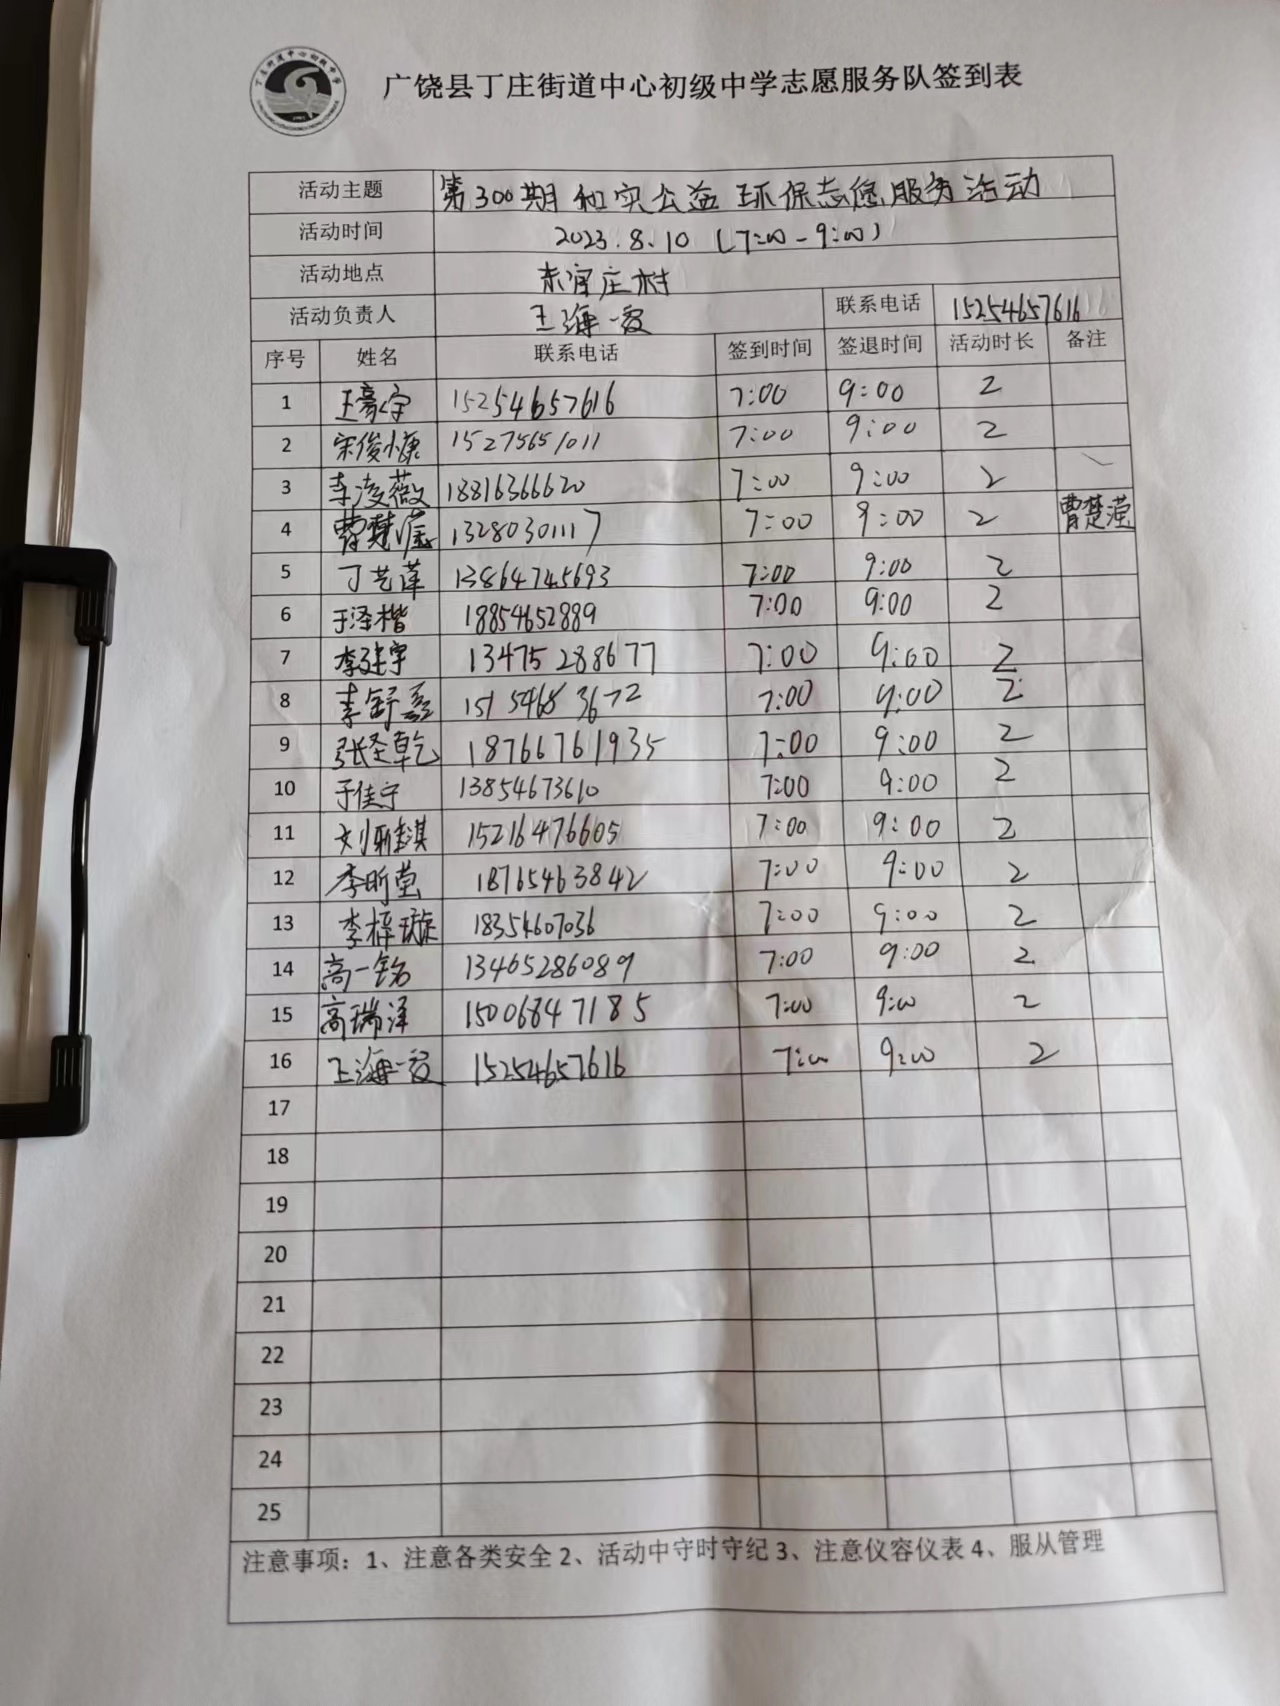 广饶县丁庄街道中心初级中学志愿服务队签到表
活动主题 第300期和实公益环保志愿服务活动
活动时间 2023.8.10 (7:00-9:00)
活动地点 庄村
活动负责人 王海 联系电话 15254657616
序号 姓名 联系电话 签到时间 签退时间 活动时长 备注
1 王豪宇 15254657616 7:00 9:00 2
2 宋俊小康 15275651011 7:00 9:00 2
3 李凌薇 18816366620 7:00 9:00 2
4 曹楚滢 13280301117 7:00 9:00 2 曹楚滢
5 丁艺萍 13864745693 7:00 9:00 2
6 于泽楷 18854652889 7:00 9:00 2
7 李建宇 13475288677 7:00 9:00 2
8 李舒 7:00 9:00 2
9 张圣乾 18766761935 7:00 9:00 2
10 于佳宁 13854673610 7:00 9:00 2
11 刘 淇 15216476605 7:00 9:00 2
12 李昕莹 18765463842 7:00 9:00 2
13 李梓璇 18354607036 7:00 9:00 2
14 高一铭 13465286089 7:00 9:00 2
15 高瑞泽 15006847185 7:00 9:00 2
16 王海 15254657616 7:00 9:00 2
17
18
19
20
21
22
23
24
25
注意事项：1、注意各类安全 2、活动中守时守纪 3、注意仪容仪表 4、服从管理